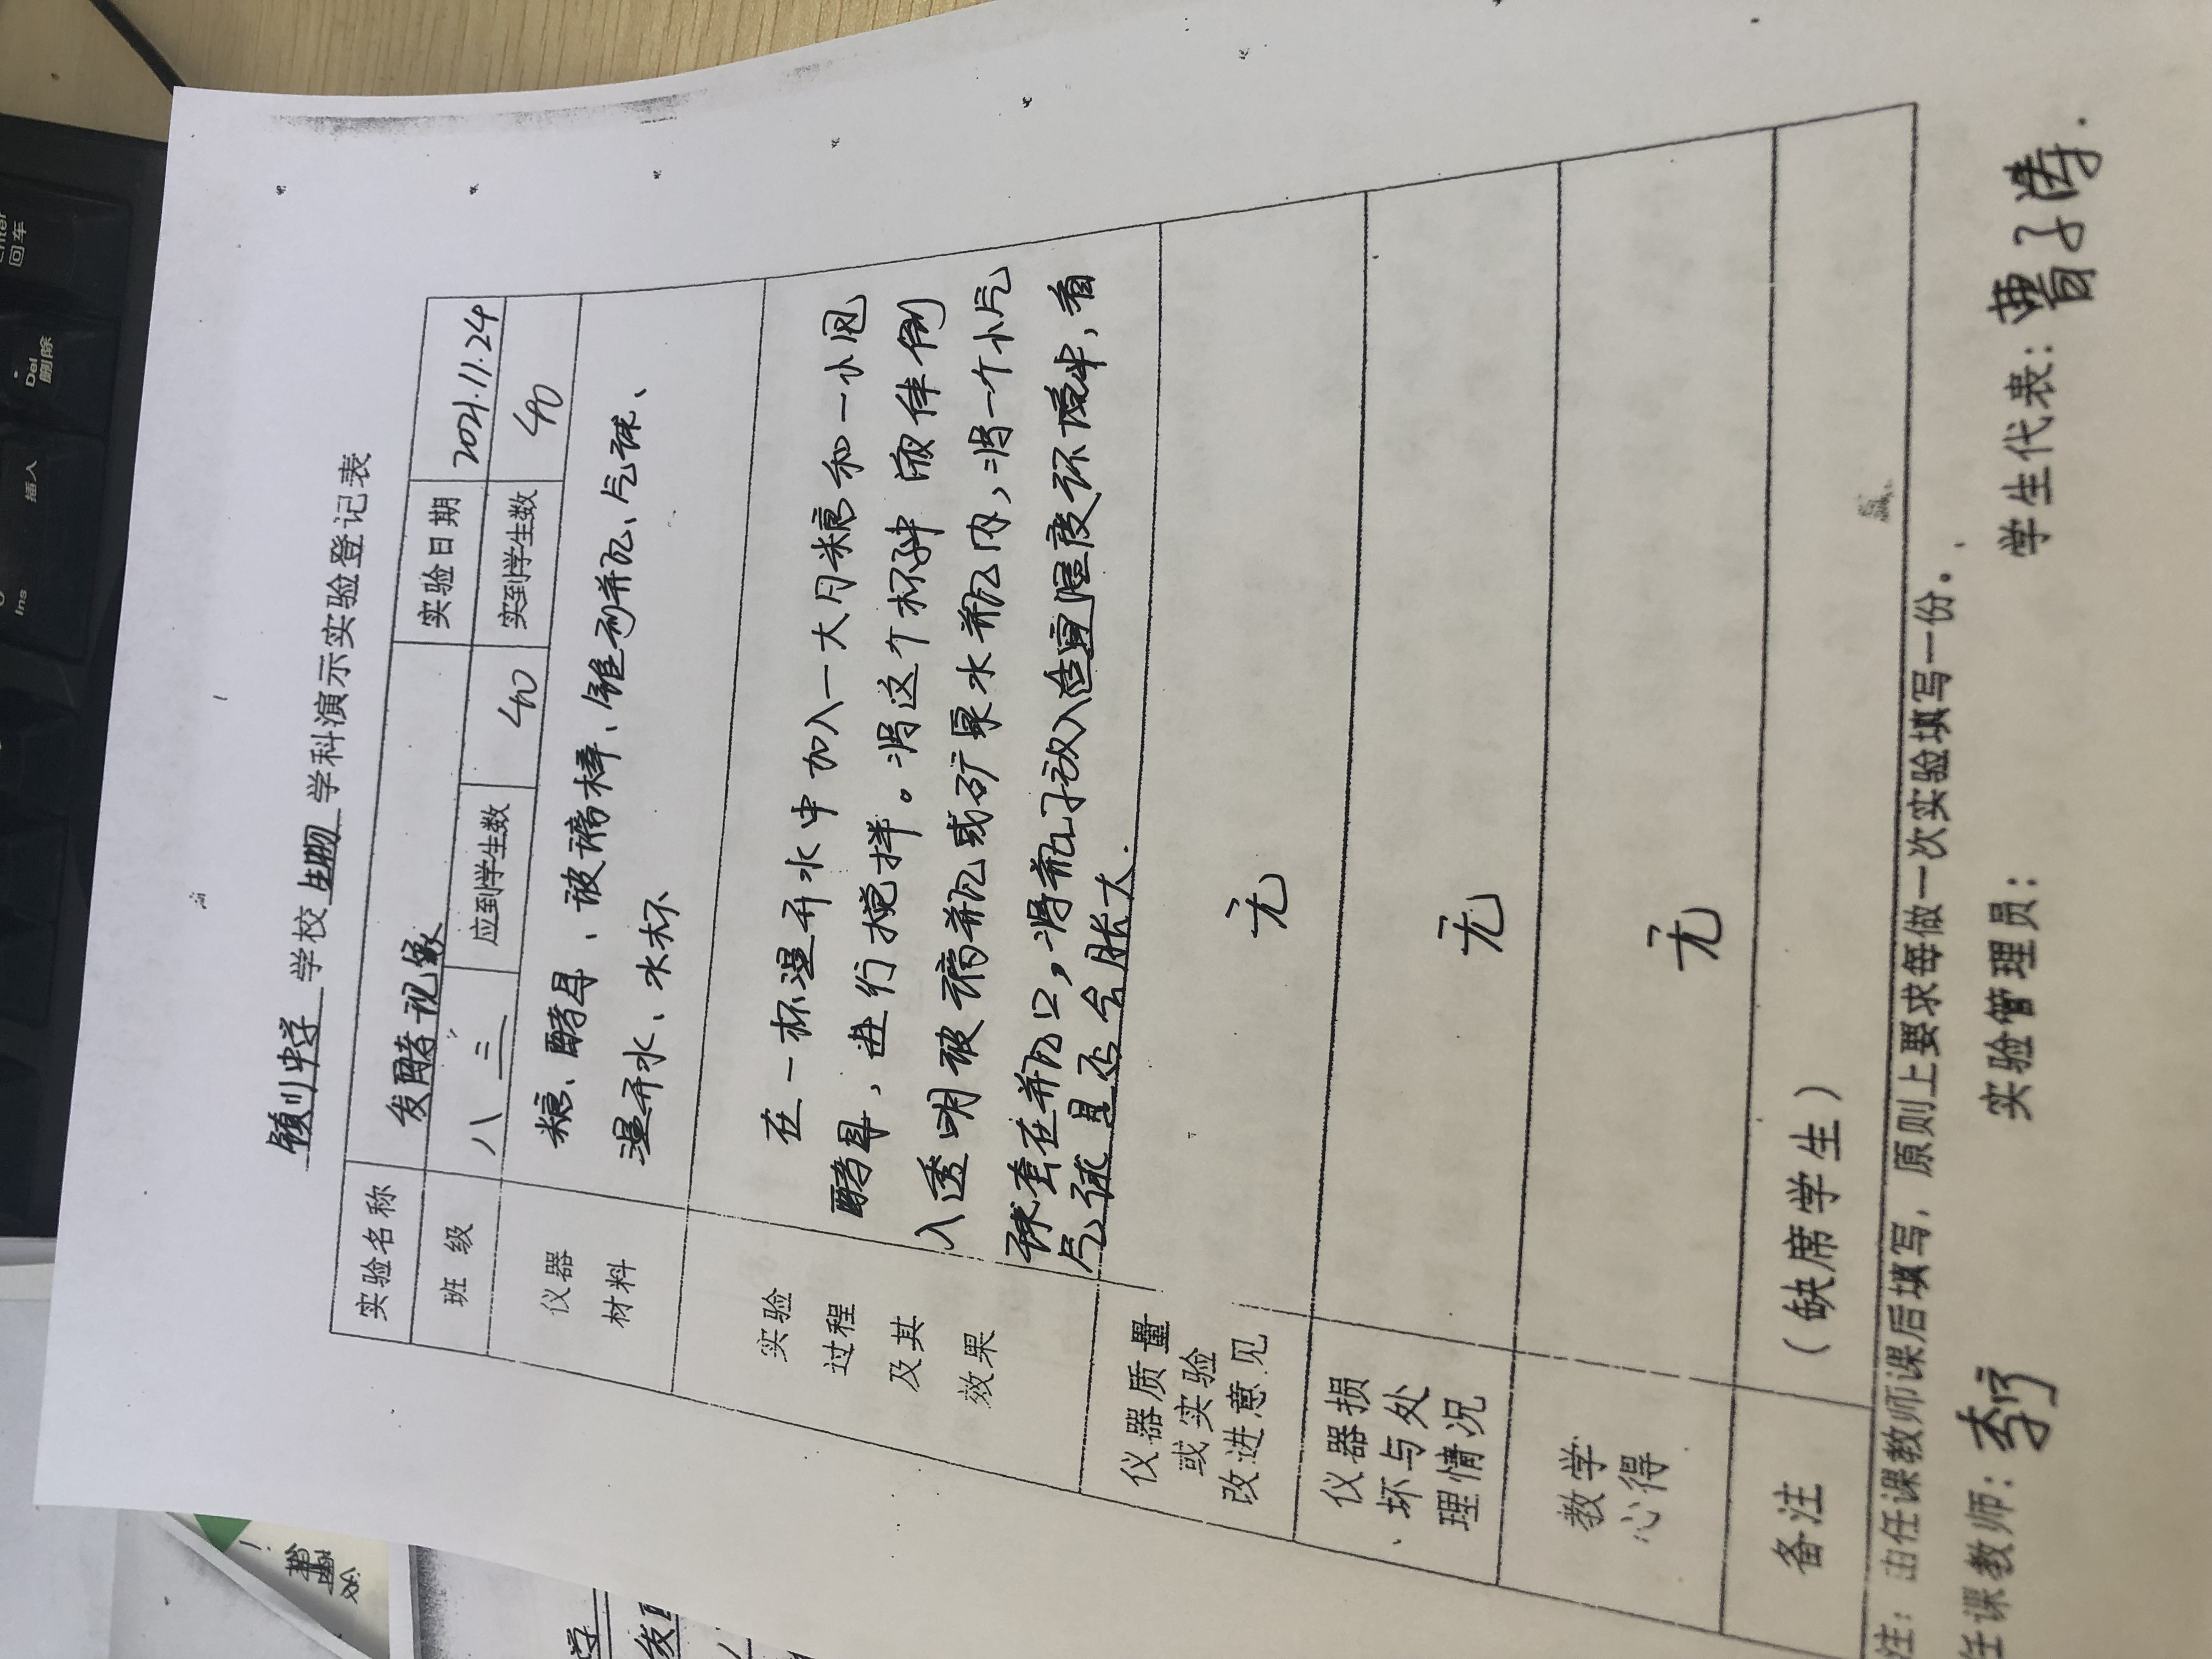 颍川中学 学校 生物 学科演示实验登记表
实验名称 发酵现象 实验日期 2021.11.24
班 级 八 三 应到学生数 40 实到学生数 40
仪器 材料
糖、酵母、玻璃棒、锥形瓶、气球、
温开水、水杯
实验 过程 及其 效果
在一杯温开水中加入一大勺糖和一小包
酵母，进行搅拌。将这个杯中液体倒
入透明玻璃瓶或矿泉水瓶内，将一个小气
球套在瓶口，将瓶子放入适宜温度环境中，看
气球是否会胀大.
仪器质量 或实验 改进意见 无
仪器损 坏与处 理情况 无
教学 心得 无
备注 （缺席学生）
注：由任课教师课后填写，原则上要求每做一次实验填写一份。
任课教师： 实验管理员： 学生代表：曹子涛.
Enter
回车
Del
删除
Ins
插入